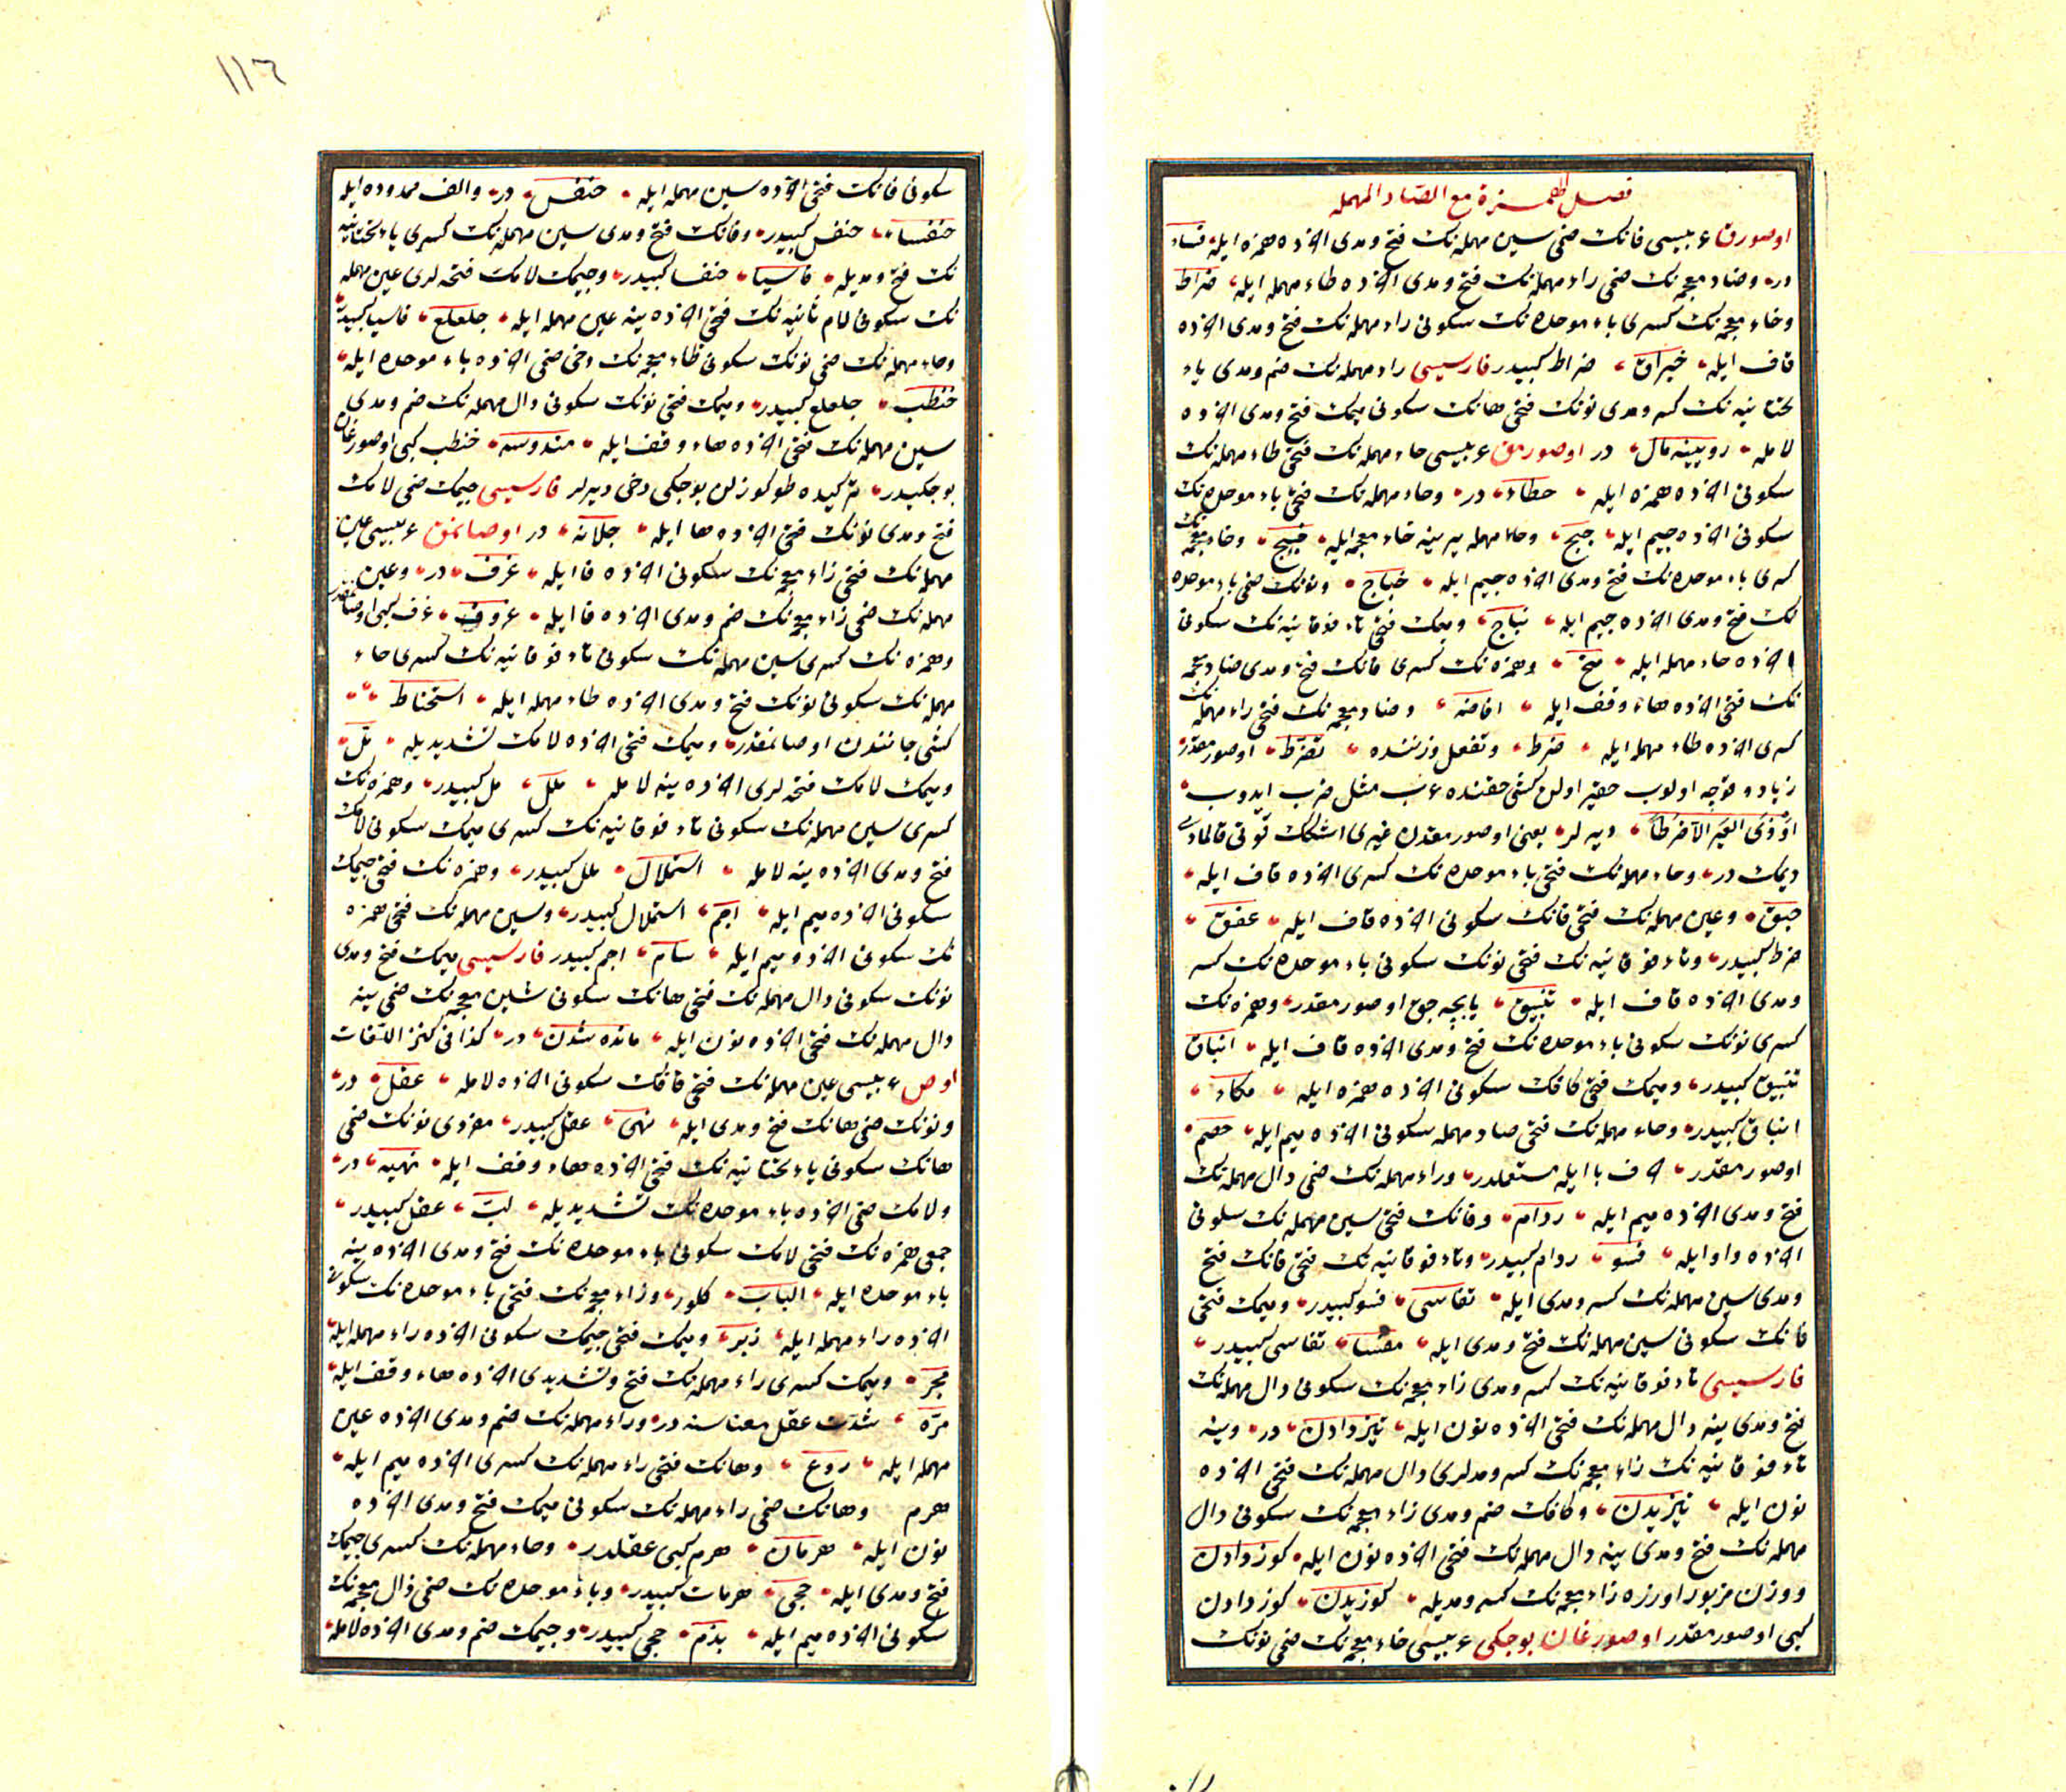 فصل الهمزة مع الصاد المهمله
اوصورق عربیسی فانک ضمی سین مهمله نک فتح ومدی اخرده همزه ایله فساء
در وضاد معجمه نک ضمی راء مهمله نک فتح ومدی اخرده طاء مهمله ایله ضراط
وخاء معجمه نک کسری باء موحده نک سکونی راء مهمله نک فتح ومدی اخرده
قاف ایله خبراق ضراط کبیدر فارسیسی راء مهمله نک ضم ومدی یاء
تحتانیه نک کسر ومدی نونک فتحی هانک سکونی میمک فتح ومدی اخرده
لامله روینه مال در اوصورمق عربیسی حاء مهمله نک فتحی طاء مهمله نک
سکونی اخرده همزه ایله حطاء در وحاء مهمله نک فتحی باء موحده نک
سکونی اخرده جیم ایله حبج وحاء مهمله یرینه خاء معجمه ایله خبج وخاء معجمه نک
کسری باء موحده نک فتح ومدی اخرده جیم ایله خباج ونونک ضمی باء موحده
نک فتح ومدی اخرده جیم ایله نباج ومیمک فتحی تاء فوقانیه نک سکونی
اخرده حاء مهمله ایله متح وهمزه نک کسری فانک فتح ومدی ضاد معجمه
نک فتحی اخرده هاء وقف ایله افاضه وضاد معجمه نک فتحی راء مهمله نک
کسری اخرده طاء مهمله ایله ضرط وتفعل وزننده تضرط اوصورمقدر
زیاده قوجه اولوب حقیر اولن کشی حقنده عرب مثل ضرب ایدوب
اوذی العیر الا ضرطا دیرلر یعنی اوصورمقدن غیری اشکک قوتی قالمادی
دیمک در وحاء مهمله نک فتحی باء موحده نک کسری اخرده قاف ایله
حبق وعین مهمله نک فتحی فانک سکونی اخرده قاف ایله عفق
ضرط کبیدر وتاء فوقانیه نک فتحی نونک سکونی باء موحده نک کسر
ومدی اخرده قاف ایله تنبیق یابجه جوق اوصورمقدر وهمزه نک
کسری نونک سکونی باء موحده نک فتح ومدی اخرده قاف ایله انباق
تنبیق کبیدر ومیمک فتحی کافک سکونی اخرده همزه ایله مکاء
انباق کبیدر وحاء مهمله نک فتحی صاد مهمله سکونی اخرده میم ایله حصم
اوصورمقدر حرف با ایله مستعملدر وراء مهمله نک ضمی دال مهمله نک
فتح ومدی اخرده میم ایله ردام وفانک فتحی سین مهمله نک سکونی
اخرده واو ایله فسو ردام کبیدر وتاء فوقانیه نک فتحی فانک فتح
ومدی سین مهمله نک کسر ومدی ایله تفاسی فسو کبیدر ومیمک فتحی
فانک سکونی سین مهمله نک فتح ومدی ایله مفسا تفاسی کبیدر
فارسیسی تاء فوقانیه نک کسر ومدی زاء معجمه نک سکونی دال مهمله نک
فتح ومدی ینه دال مهمله نک فتحی اخرده نون ایله تیز دادن در وینه
تاء فوقانیه نک زاء معجمه نک کسر ومدلری دال مهمله نک فتحی اخرده
نون ایله تیزیدن وکافک ضم ومدی زاء معجمه نک سکونی دال
مهمله نک فتح ومدی ینه دال مهمله نک فتحی اخرده نون ایله کوز دادن
ووزن مزبور اوزره زاء معجمه نک کسر ومدیله کوزیدن کوز دادن
کبی اوصورمقدر اوصورغان بوجکی عربیسی خاء معجمه نک ضمی نونک
١١٦
سکونی فانک فتحی اخرده سین مهمله ایله خنفس در والف ممدوده ایله
خنفساء خنفس کبیدر وفانک فتح ومدی سین مهمله نک کسری یاء تحتانیه
نک فتح ومدیله فاسیا خنفسا کبیدر وجیمک لامک فتحه لری عین مهمله
نک سکونی لام ثانیه نک فتحی اخرده ینه عین مهمله ایله جلعلع فاسیا کبیدر
وحاء مهمله نک ضمی نونک سکونی ظاء معجمه نک دخی ضمی اخرده باء موحده ایله
حنظب جلعلع کبیدر ومیمک فتحی نونک سکونی دال مهمله نک ضم ومدی
سین مهمله نک فتحی اخرده هاء وقف ایله مندوسه حنظب کبی اوصورغان
بوجکیدر ترکیده طوکوزلن بوجکی دخی دیرلر فارسیسی جیمک ضمی لامک
فتح ومدی نونک فتحی اخرده ها ایله جلانه در اوصانمق عربیسی عین
مهمله نک فتحی زاء معجمه نک سکونی اخرده فا ایله عزف در وعین
مهمله نک ضمی زاء معجمه نک ضم ومدی اخرده فا ایله عزوف عزف کبی اوصانمقدر
وهمزه نک کسری سین مهمله نک سکونی تاء فوقانیه نک کسری حاء
مهمله نک سکونی نونک فتح ومدی اخرده طاء مهمله ایله استحناط
کشی جانندن اوصانمقدر ومیمک فتحی اخرده لامک تشدیدیله مل
ومیمک لامک فتحه لری اخرده ینه لامله ملل مل کبیدر وهمزه نک
کسری سین مهمله نک سکونی تاء فوقانیه نک کسری میمک سکونی لامک
فتح ومدی اخرده ینه لامله استملال ملل کبیدر وهمزه نک فتحی جیمک
سکونی اخرده میم ایله اجم استملال کبیدر وسین مهمله نک فتحی همزه
نک سکونی اخرده میم ایله سام اجم کبیدر فارسیسی میمک فتح ومدی
نونک سکونی دال مهمله نک فتحی هانک سکونی شین معجمه نک ضمی ینه
دال مهمله نک فتحی اخرده نون ایله مانده شدن در کذا فی کنز اللغات
اوص عربیسی عین مهمله نک فتحی قافک سکونی اخرده لامله عقل در
ونونک ضمی هانک فتح ومدی ایله نهی عقل کبیدر مفردی نونک ضمی
هانک سکونی یاء تحتانیه نک فتحی اخرده هاء وقف ایله نهیه در
ولامک ضمی اخرده باء موحده نک تشدیدیله لب عقل کبیدر
جمعی همزه نک فتحی لامک سکونی باء موحده نک فتح ومدی اخرده ینه
باء موحده ایله الباب کلور وزاء معجمه نک فتحی باء موحده نک سکونی
اخرده راء مهمله ایله زبر ومیمک فتحی جیمک سکونی اخرده راء مهمله ایله
مجر ومیمک کسری راء مهمله نک فتح وتشدیدی اخرده هاء وقف ایله
مره شدت عقل معناسنه در وراء مهمله نک ضم ومدی اخرده عین
مهمله ایله روع وهانک فتحی راء مهمله نک کسری اخرده میم ایله
هرم وهانک ضمی راء مهمله نک سکونی میمک فتح ومدی اخرده
نون ایله هرمان هرم کبی عقلدر وحاء مهمله نک کسری جیمک
فتح ومدی ایله حجی هرمان کبیدر وباء موحده نک ضمی ذال معجمه نک
سکونی اخرده میم ایله بذم حجی کبیدر وجیمک ضم ومدی اخرده لامله